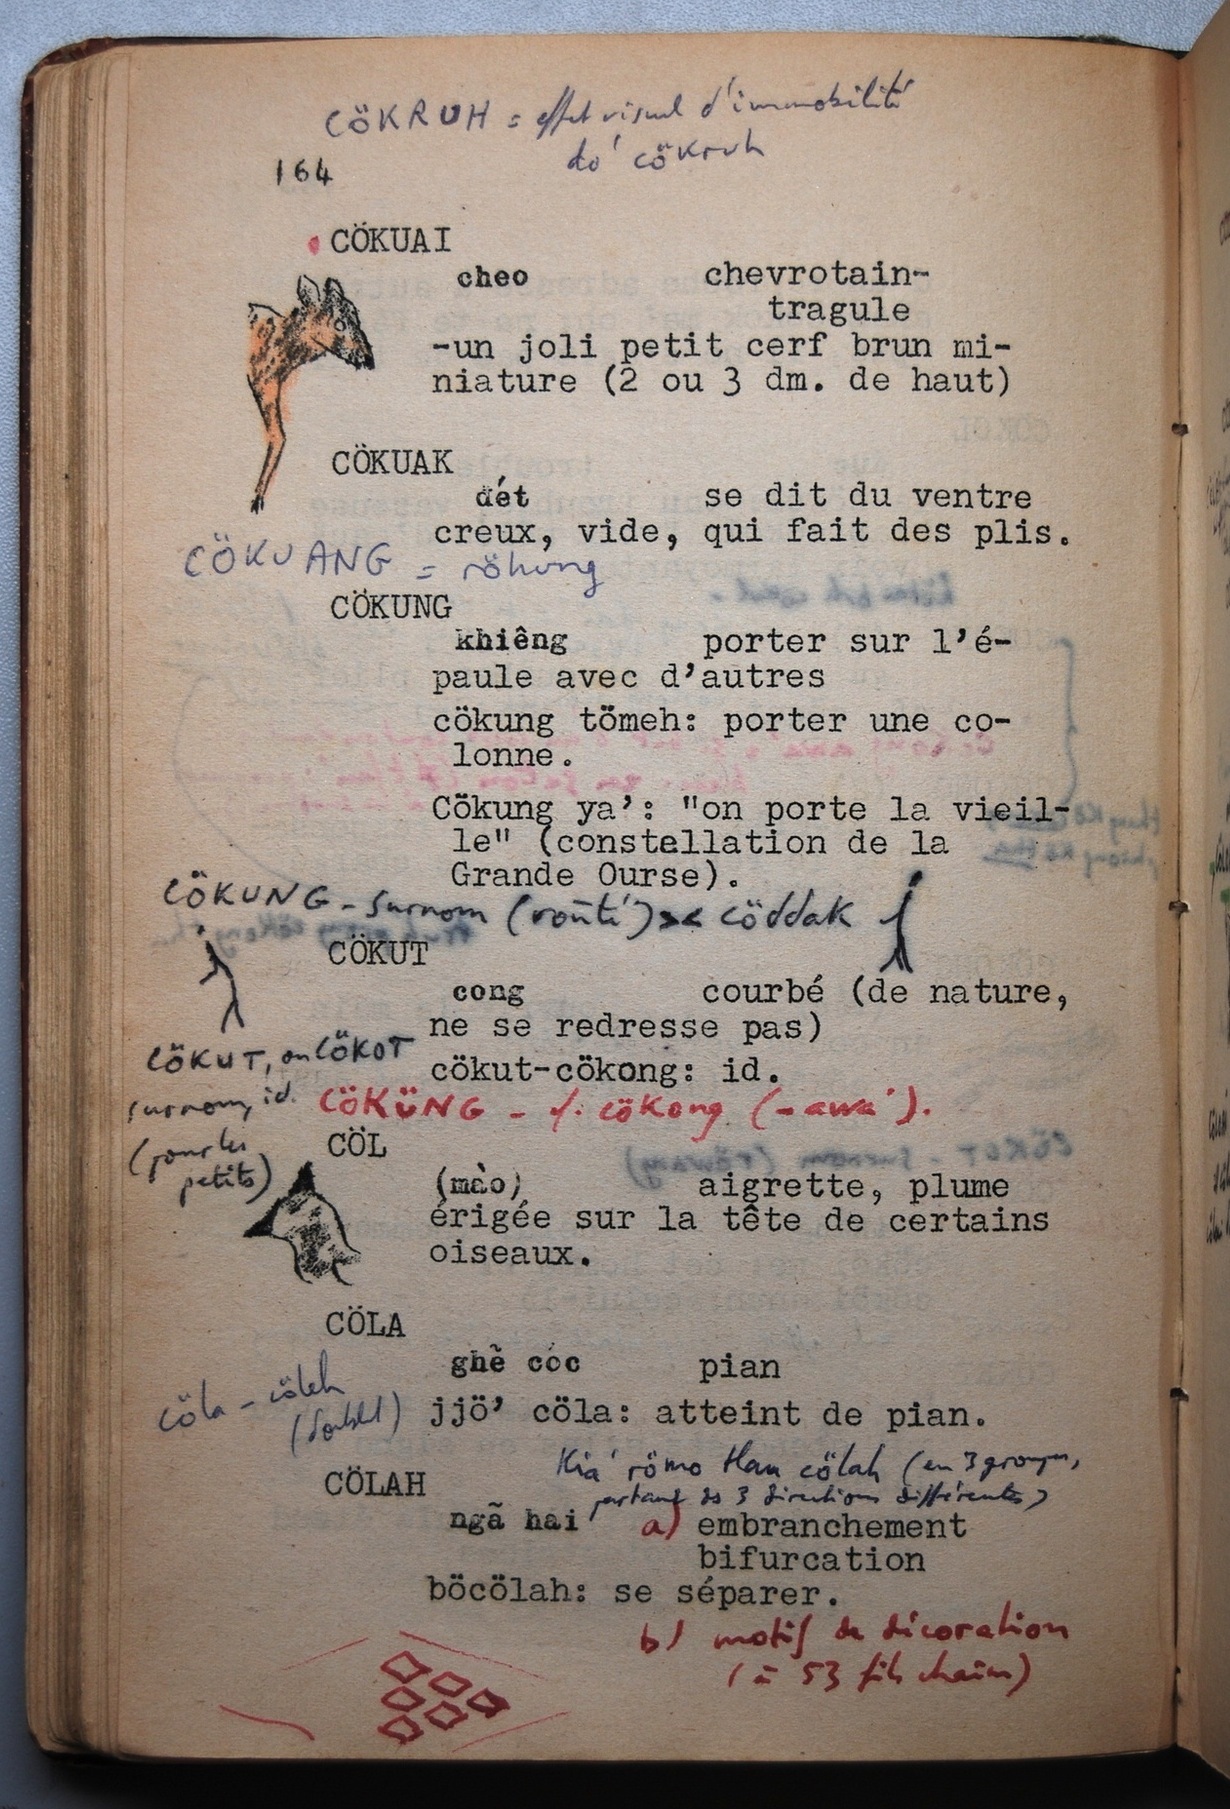 CÖKRUH = effet visuel d'immobilité
do' cökruh
164
CÖKUAI
cheo chevrotain-
tragule
-un joli petit cerf brun mi-
niature (2 ou 3 dm. de haut)
CÖKUAK
dét se dit du ventre
creux, vide, qui fait des plis.
CÖKUANG = röhung
CÖKUNG
khiêng porter sur l'é-
paule avec d'autres
cökung tömeh: porter une co-
lonne.
Cökung ya': "on porte la vieil-
le" (constellation de la
Grande Ourse).
CÖKUNG - surnom (voûté) >< cöddak
CÖKUT
cong courbé (de nature,
ne se redresse pas)
CÖKUT, ou CÖKOT
cökut-cökong: id.
surnom, id.
(pour les
petits)
CÖKÜNG - cökong (-awa').
CÖL
(mào) aigrette, plume
érigée sur la tête de certains
oiseaux.
CÖLA
ghẻ cóc pian
cöla - cöleh
(doublet)
jjö' cöla: atteint de pian.
Kia' römo tlau cölah (en 3 groupes,
partant ds 3 directions différentes)
CÖLAH
ngã hai a) embranchement
bifurcation
böcölah: se séparer.
b) motif de décoration
(à 53 fils chaîne)